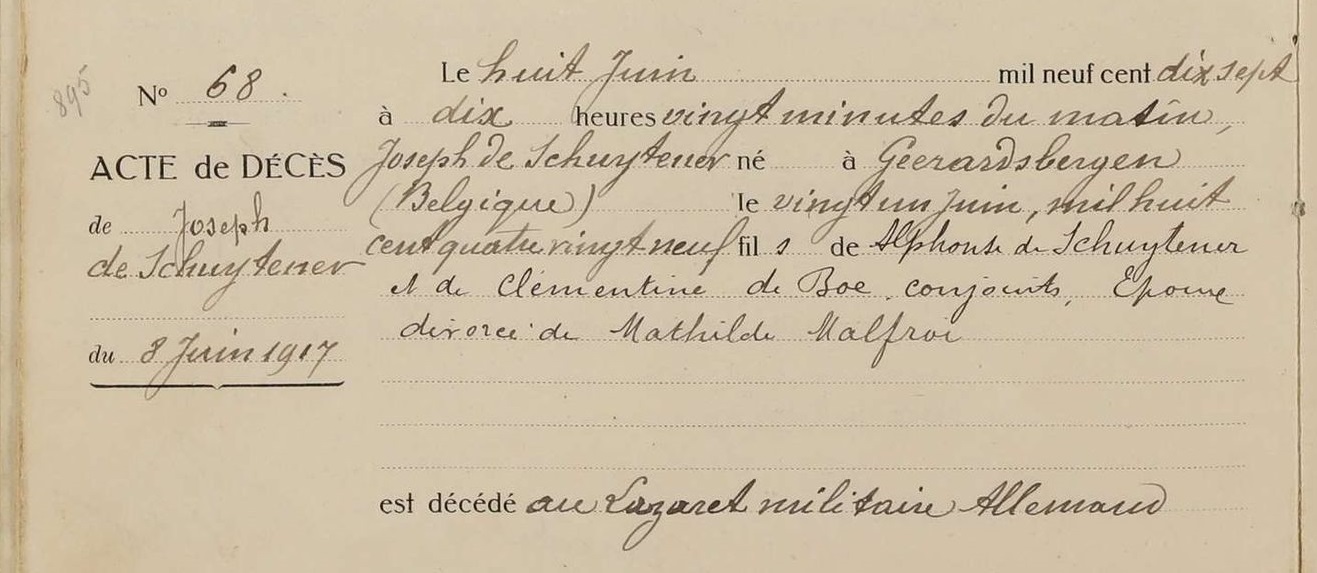 895
No 68.
ACTE de DÉCÈS
de Joseph
de Schuytener
du 8 Juin 1917
Le huit Juin mil neuf cent dix sept
à dix heures vingt minutes du matin,
Joseph de Schuytener né à Geerardsbergen
(Belgique) le vingt un Juin, mil huit
cent quatre vingt neuf fils de Alphonse de Schuytener
et de Clémentine de Boe, conjoints, Epoux
divorcé de Mathilde Malfroi
est décédé au Lazaret militaire Allemand